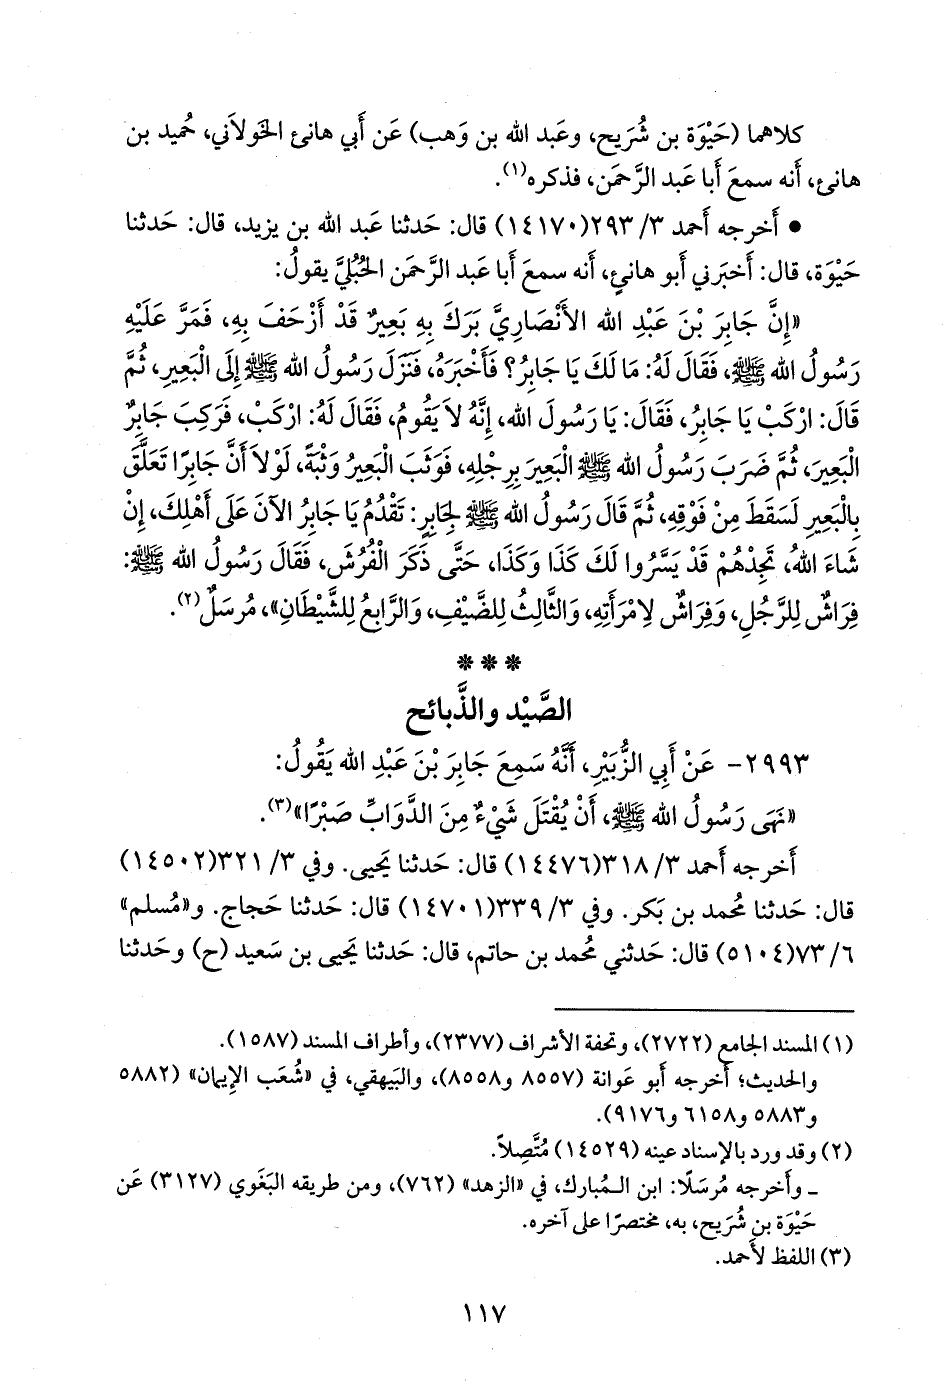 كلاهما (حَيْوَة بن شُرَيح، وعَبد الله بن وَهب) عَن أَبي هانئ الخَولاَني، حُميد بن
هانئ، أَنه سمعَ أَبا عَبد الرَّحمَن، فذكره(١).
• أَخرجه أَحمد ٣/ ٢٩٣(١٤١٧٠) قال: حَدثنا عَبد الله بن يزيد، قال: حَدثنا
حَيْوَة، قال: أَخبَرني أَبو هانئٍ، أَنه سمعَ أَبا عَبد الرَّحمَن الحُبُلِيَّ يقولُ:
«إِنَّ جَابِرَ بْنَ عَبْدِ الله الأَنْصَارِيَّ بَرَكَ بِهِ بَعِيرٌ قَدْ أَزْحَفَ بِهِ، فَمَرَّ عَلَيْهِ
رَسُولُ الله ﷺ، فَقَالَ لَهُ: مَا لَكَ يَا جَابِرُ؟ فَأَخْبَرَهُ، فَنَزَلَ رَسُولُ الله ﷺ إِلَى الْبَعِيرِ، ثُمَّ
قَالَ: ارْكَبْ يَا جَابِرُ، فَقَالَ: يَا رَسُولَ الله، إِنَّهُ لاَ يَقُومُ، فَقَالَ لَهُ: ارْكَبْ، فَرَكِبَ جَابِرٌ
الْبَعِيرَ، ثُمَّ ضَرَبَ رَسُولُ الله ﷺ الْبَعِيرَ بِرِجْلِهِ، فَوَثَبَ الْبَعِيرُ وَثْبَةً، لَوْلاَ أَنَّ جَابِرًا تَعَلَّقَ
بِالْبَعِيرِ لَسَقَطَ مِنْ فَوْقِهِ، ثُمَّ قَالَ رَسُولُ الله ﷺ لِجَابِرٍ: تَقْدُمُ يَا جَابِرُ الآنَ عَلَى أَهْلِكَ، إِنْ
شَاءَ اللهُ، تَجِدْهُمْ قَدْ يَسَّرُوا لَكَ كَذَا وَكَذَا، حَتَّى ذَكَرَ الْفُرُشَ، فَقَالَ رَسُولُ الله ﷺ:
فِرَاشٌ لِلرَّجُلِ، وَفِرَاشٌ لاِمْرَأَتِهِ، وَالثَّالِثُ لِلضَّيْفِ، وَالرَّابِعُ لِلشَّيْطَانِ»، مُرسَلٌ(٢).
* * *
الصَّيْد والذَّبائح
٢٩٩٣- عَنْ أَبِي الزُّبَيْرِ، أَنَّهُ سَمِعَ جَابِرَ بْنَ عَبْدِ الله يَقُولُ:
«نَهَى رَسُولُ الله ﷺ، أَنْ يُقْتَلَ شَيْءٌ مِنَ الدَّوَابِّ صَبْرًا»(٣).
أَخرجه أَحمد ٣/ ٣١٨(١٤٤٧٦) قال: حَدثنا يَحيى. وفي ٣/ ٣٢١(١٤٥٠٢)
قال: حَدثنا مُحمد بن بَكر. وفي ٣/ ٣٣٩(١٤٧٠١) قال: حَدثنا حَجاج. و«مُسلم»
٦/ ٧٣(٥١٠٤) قال: حَدثني مُحمد بن حاتم، قال: حَدثنا يَحيى بن سَعيد (ح) وحَدثنا
(١) المسند الجامع (٢٧٢٢)، وتحفة الأشراف (٢٣٧٧)، وأطراف المسند (١٥٨٧).
والحديث؛ أَخرجه أَبو عَوانة (٨٥٥٧ و٨٥٥٨)، والبَيهقي، في «شُعَب الإِيمان» (٥٨٨٢
و٥٨٨٣ و٦١٥٨ و٩١٧٦).
(٢) وقد ورد بالإسناد عينه (١٤٥٢٩) مُتَّصِلاً.
ـ وأَخرجه مُرسَلًا: ابن المُبارك، في «الزهد» (٧٦٢)، ومن طريقه البَغَوي (٣١٢٧) عَن
حَيْوَة بن شُرَيح، به، مختصرًا على آخره.
(٣) اللفظ لأَحمد.
١١٧